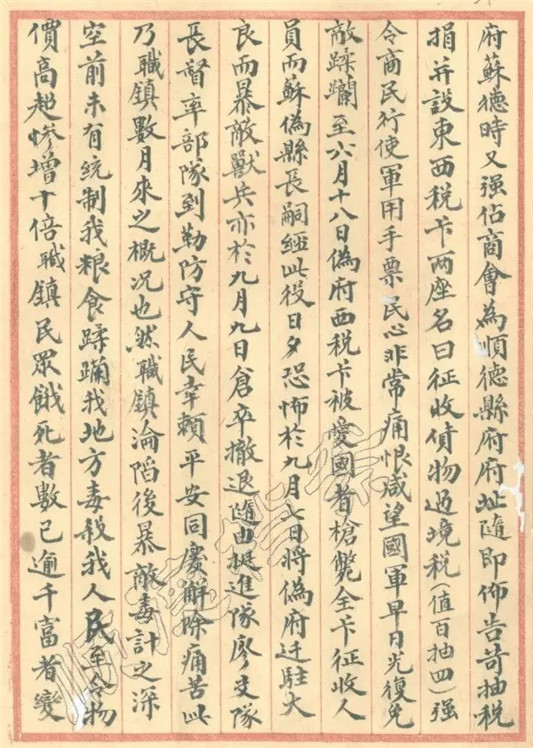 府蘇德時又强佔商會為順德縣府府址隨即佈告苛抽税
捐并設東西税卡两座名曰征收貨物過境税(值百抽四)强
令商民行使軍用手票民心非常痛恨咸望國軍早日光復免
敵蹂躪至六月十八日偽府西税卡被愛國者槍斃全卡征收人
員而蘇偽縣長嗣經此役日夕恐怖於九月七日將偽府迁駐大
良而暴敵獸兵亦於九月九日倉卒撤退隨由挺進隊廖支隊
長督率部隊到勒防守人民幸賴平安同慶解除痛苦此
乃職鎮數月來之概况也然職鎮淪陷後暴敵毒計之深
空前未有统制我粮食蹂躪我地方毒殺我人民至令物
價高起慘增十倍職鎮民眾餓死者數已逾千富者變
順德檔案